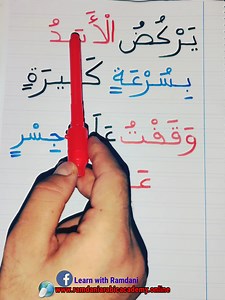 يَرْكُضُ الْأَسَدُ
بِسُرْعَةٍ كَبِيرَةٍ
وَقَفْتُ جِسْرٍ
Learn with Ramdani
www.ramdaniarabicacademy.online